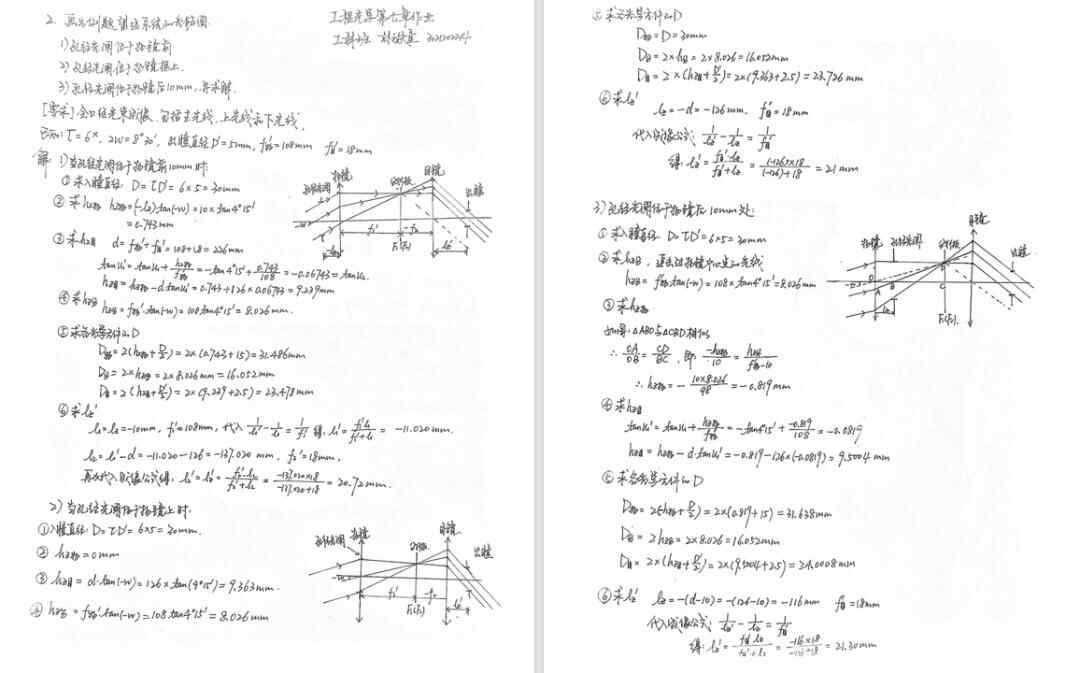 工程光学第七章作业
2. 画出例题望远系统的光路图.
1) 孔径光阑位于物镜前
2) 孔径光阑位于物镜框上.
3) 孔径光阑位于物镜后10mm, 并求解.
[要求] 全口径光束成像, 包括主光线、上光线和下光线.
已知: Γ=6×, 2w=8°30′, 出瞳直径D′=5mm, f物′=108mm f目′=18mm
解 1) 当孔径光阑位于物镜前10mm时:
① 求入瞳直径: D=ΓD′=6×5=30mm
② 求hz物 hz物=(-lz)·tan(-w)=10×tan4°15′
=0.743mm
③ 求hz目 d=f物′+f目′=108+18=126mm
tanu′=tanu+hz物/f物′=-tan4°15′+0.743/108=-0.06743=tanu₂
hz目=hz物-d·tanu′=0.743+126×0.06743=9.239mm
④ 求hz分
hz分=f物′·tan(-w)=108tan4°15′=8.026mm.
⑤ 求各光学元件的D
D物=2(hz物+D/2)=2×(0.743+15)=31.486mm
D分=2×hz分=2×8.026mm=16.052mm
D目=2(hz目+D′/2)=2×(9.239+2.5)=23.478mm
⑥ 求lz′
l₁=lz=-10mm, f₁′=108mm, 代入 1/l₁′-1/l₁=1/f₁′ 得, l₁′=f₁′l₁/(f₁′+l₁)=-11.020mm.
l₂=l₁′-d=-11.020-126=-137.020mm, f₂′=18mm,
再次代入成像公式得, l₂′=lz′=f₂′·l₂/(f₂′+l₂)=-137.020×18/(-137.020+18)=20.72mm.
孔径光阑
物镜
分划板
目镜
出瞳
f₁′
-f₂
F₁′(F₂)
lz′
2) 当孔径光阑位于物镜上时:
① 入瞳直径: D=ΓD′=6×5=30mm.
② hz物=0mm
③ hz目=d·tan(-w)=126×tan(4°15′)=9.363mm.
④ hz分=f物′·tan(-w)=108tan4°15′=8.026mm
孔径光阑
物镜
分划板
目镜
出瞳
f₁′
-f₂
F₁′(F₂)
lz′
⑤ 求各光学元件的D
D物=D=30mm
D分=2×hz分=2×8.026=16.052mm
D目=2×(hz目+D′/2)=2×(9.363+2.5)=23.726mm
⑥ 求lz′
lz=-d=-126mm, f目′=18mm
代入成像公式: 1/lz′-1/lz=1/f目′
得: lz′=f目′·lz/(f目′+lz)=(-126)×18/((-126)+18)=21mm
3) 孔径光阑位于物镜后10mm处:
① 求入瞳直径 D=ΓD′=6×5=30mm
hz分=f物′·tan(-w)=108×tan4°15′=8.026mm
③ 求hz物
△ABO与△CBD相似
∴ OA/OB=CD/BC, 即: -hz物/10=hz分/(f物′-10)
∴ hz物=-10×8.026/98=-0.819mm
④ 求hz目
tanu′=tanu+hz物/f物′=-tan4°15′+-0.819/108=-0.0819
hz目=hz物-d·tanu′=-0.819-126×(-0.0819)=9.5004mm
⑤ 求各光学元件的D
D物=2(-hz物+D/2)=2×(0.819+15)=31.638mm
D分=2hz分=2×8.026=16.052mm
D目=2×(hz目+D′/2)=2×(9.5004+2.5)=24.0008mm
⑥ 求lz′ lz=-(d-10)=-(126-10)=-116mm f目′=18mm
代入成像公式: 1/lz′-1/lz=1/f目′
得: lz′=f目′lz/(f目′+lz)=-116×18/(-116+18)=21.30mm
物镜
孔径光阑
分划板
目镜
出瞳
A
B
C
F₁′(F₂)